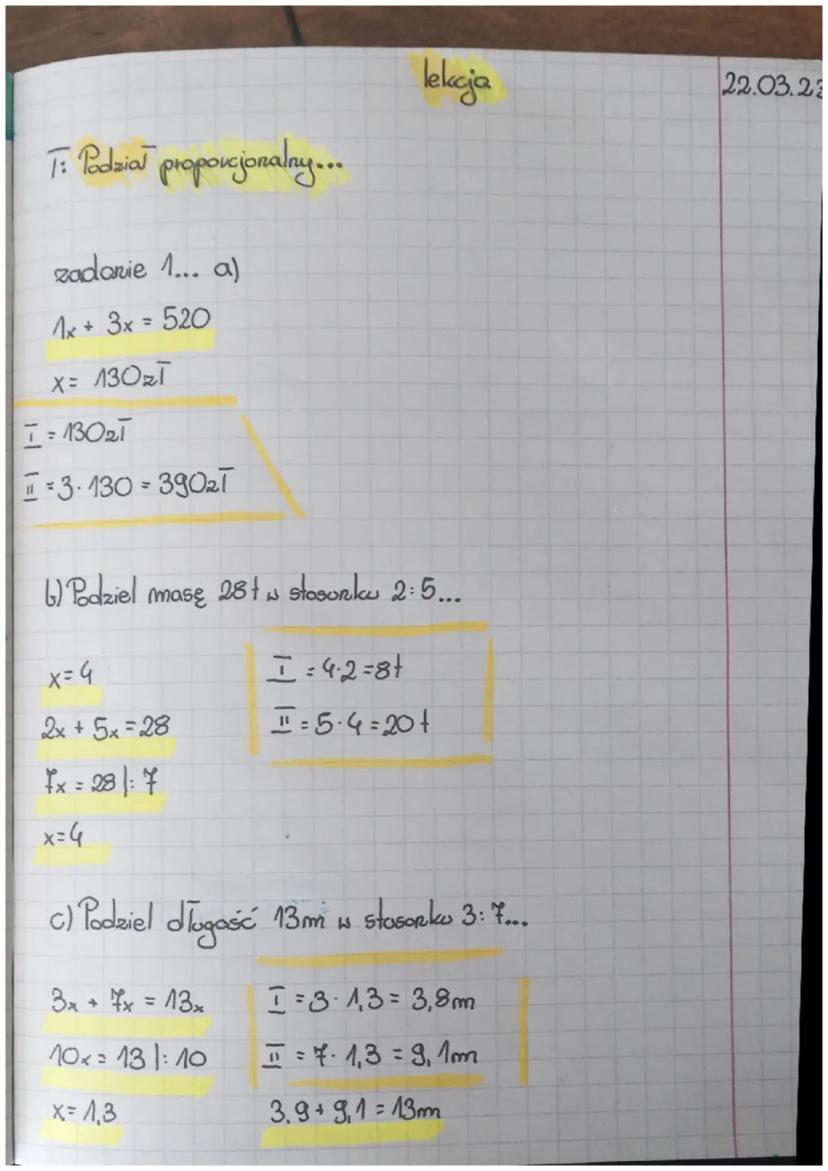 lekcja
22.03.23
T: Podział proporcjonalny...
zadanie 1... a)
1x + 3x = 520
x = 130zł
I = 130zł
II = 3 · 130 = 390zł
b) Podziel masę 28t w stosunku 2:5...
x=4
I = 4·2=8t
2x + 5x = 28
II = 5·4 = 20t
7x = 28 |: 7
x=4
c) Podziel długość 13m w stosunku 3:7...
3x + 7x = 13x
I = 3 · 1,3 = 3,8m
10x = 13 |: 10
II = 7 · 1,3 = 9,1m
x= 1,3
3,9 + 9,1 = 13m